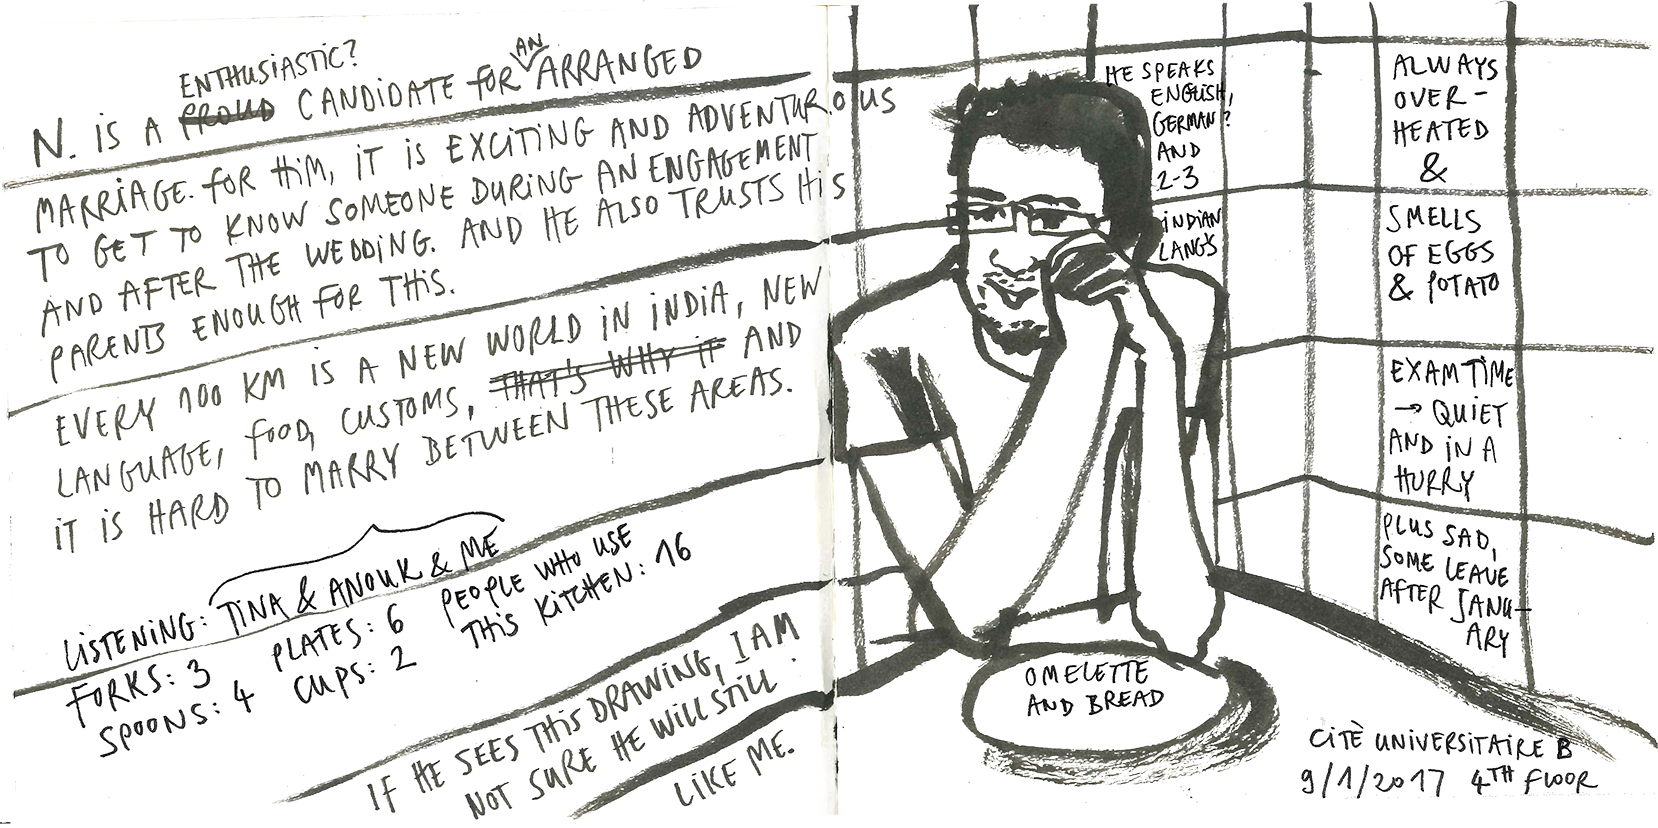 ENTHUSIASTIC?
N. IS A PROUD CANDIDATE FOR AN ARRANGED
MARRIAGE. FOR HIM, IT IS EXCITING AND ADVENTUROUS
TO GET TO KNOW SOMEONE DURING AN ENGAGEMENT
AND AFTER THE WEDDING. AND HE ALSO TRUSTS HIS
PARENTS ENOUGH FOR THIS.
EVERY 100 KM IS A NEW WORLD IN INDIA, NEW
LANGUAGE, FOOD, CUSTOMS, THAT'S WHY IT AND
IT IS HARD TO MARRY BETWEEN THESE AREAS.
LISTENING: TINA & ANOUK & ME
FORKS: 3 PLATES: 6 PEOPLE WHO USE
SPOONS: 4 CUPS: 2 THIS KITCHEN: 16
IF HE SEES THIS DRAWING, I AM
NOT SURE HE WILL STILL
LIKE ME.
HE SPEAKS
ENGLISH,
GERMAN?
AND
2-3
INDIAN
LANG'S
ALWAYS
OVER-
HEATED
&
SMELLS
OF EGGS
& POTATO
EXAM TIME
→ QUIET
AND IN A
HURRY
PLUS SAD,
SOME LEAVE
AFTER JANU-
ARY
OMELETTE
AND BREAD
CITÈ UNIVERSITAIRE B
9/1/2017 4TH FLOOR